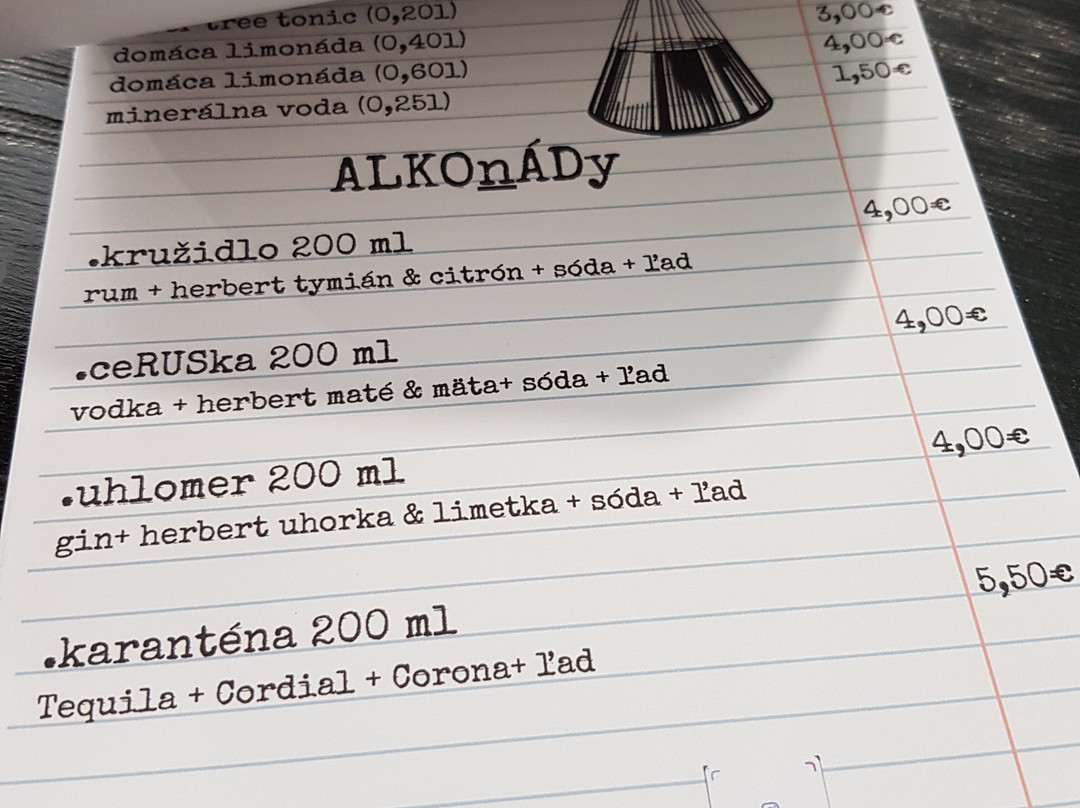 tree tonic (0,20l)
domáca limonáda (0,40l) 3,00€
domáca limonáda (0,60l) 4,00€
minerálna voda (0,25l) 1,50€
ALKOnÁDy
.kružidlo 200 ml 4,00€
rum + herbert tymián & citrón + sóda + ľad
.ceRUSka 200 ml 4,00€
vodka + herbert maté & mäta+ sóda + ľad
.uhlomer 200 ml 4,00€
gin+ herbert uhorka & limetka + sóda + ľad
.karanténa 200 ml 5,50€
Tequila + Cordial + Corona+ ľad